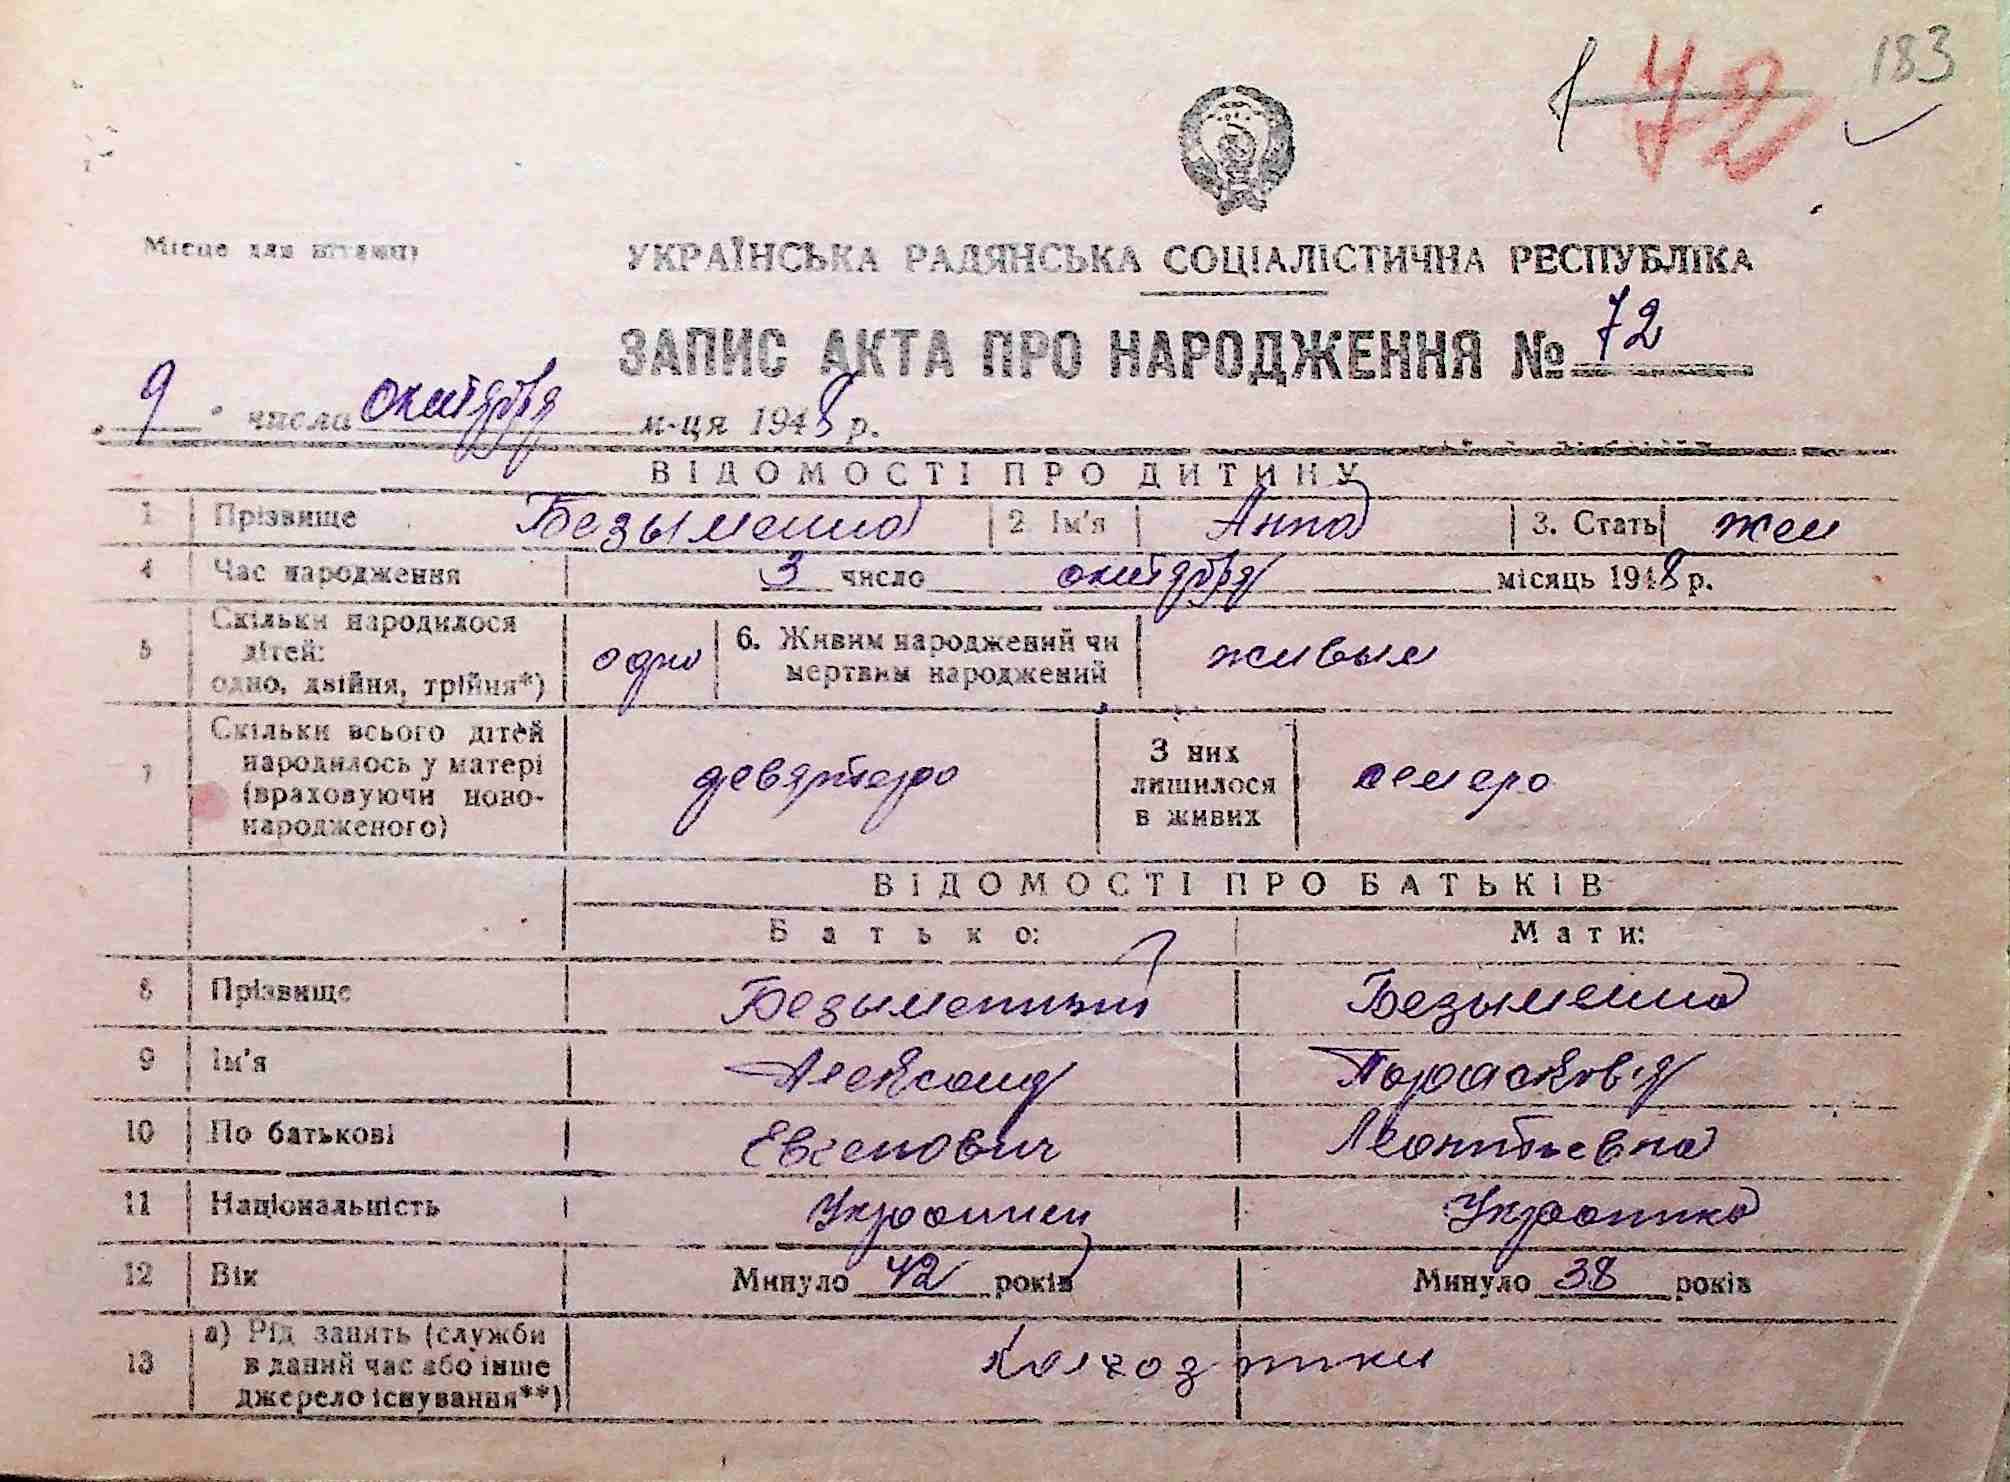 183
72
Місце для
УКРАЇНСЬКА РАДЯНСЬКА СОЦІАЛІСТИЧНА РЕСПУБЛІКА
ЗАПИС АКТА ПРО НАРОДЖЕННЯ № 72
„ 9 " числа октября м-ця 1948 р.
ВІДОМОСТІ ПРО ДИТИНУ
1 Прізвище Безыменна 2 Ім'я Анна 3. Стать жен
4 Час народження 3 число октября місяць 1948 р.
5 Скільки народилося дітей: одно, двійня, трійня*) одно 6. Живим народжений чи мертвим народжений живым
7 Скільки всього дітей народилось у матері (враховуючи новонародженого) девятеро З них лишилося в живих семеро
ВІДОМОСТІ ПРО БАТЬКІВ
Батько: Мати:
8 Прізвище Безыменный Безыменна
9 Ім'я Александ Парасковія
10 По батькові Евгенович Леонтьевна
11 Національність Украинец Украинка
12 Вік Минуло 42 років Минуло 38 років
13 а) Рід занять (служби в даний час або інше джерело існування**) Колхозники